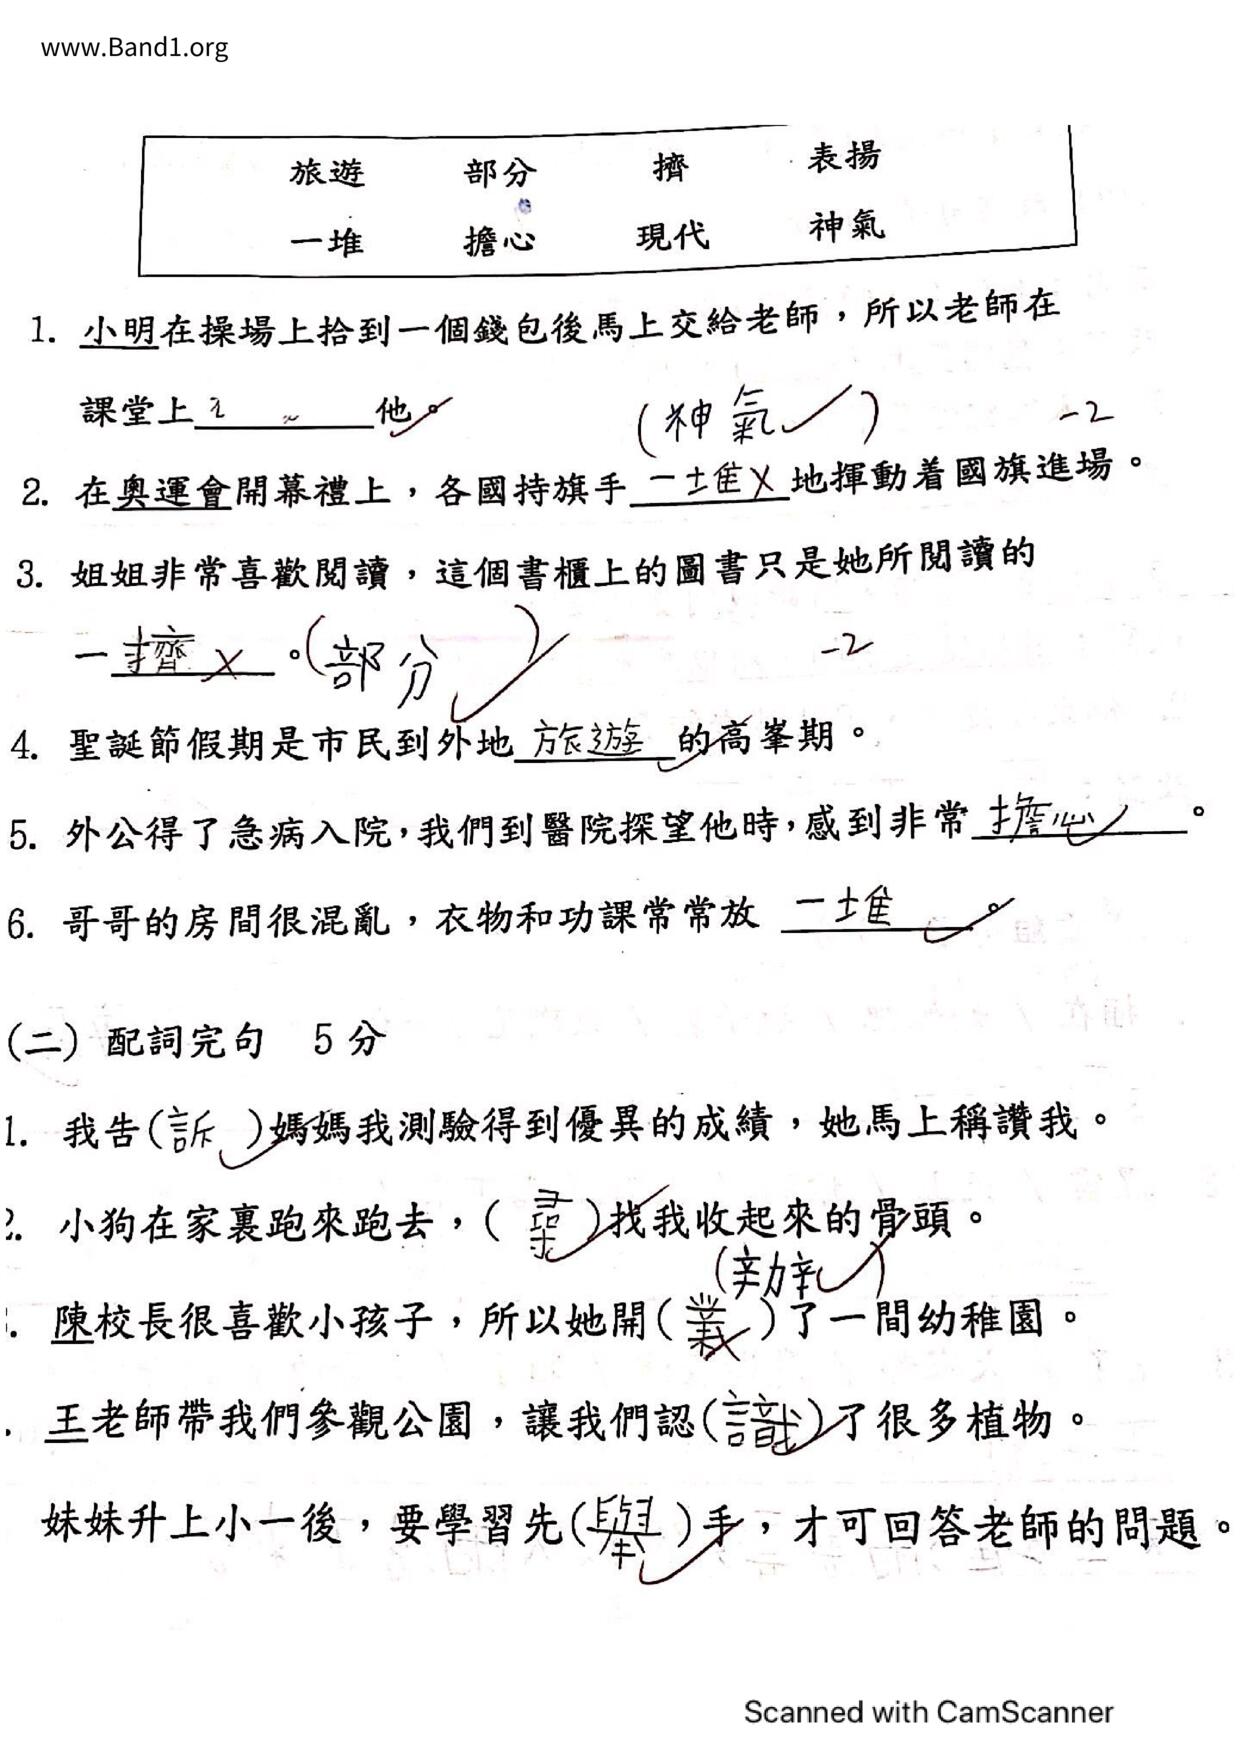 www.Band1.org
旅遊 部分 擠 表揚
一堆 擔心 現代 神氣
1. 小明在操場上拾到一個錢包後馬上交給老師，所以老師在
課堂上 他。
(神氣) -2
2. 在奧運會開幕禮上，各國持旗手一堆地揮動着國旗進場。
3. 姐姐非常喜歡閱讀，這個書櫃上的圖書只是她所閱讀的
一擠。(部分) -2
4. 聖誕節假期是市民到外地旅遊的高峯期。
5. 外公得了急病入院，我們到醫院探望他時，感到非常擔心。
6. 哥哥的房間很混亂，衣物和功課常常放 一堆。
(二) 配詞完句 5分
1. 我告(訴)媽媽我測驗得到優異的成績，她馬上稱讚我。
2. 小狗在家裏跑來跑去，(尋)找我收起來的骨頭。
. 陳校長很喜歡小孩子，所以她開(業)了一間幼稚園。
. 王老師帶我們參觀公園，讓我們認(識)了很多植物。
妹妹升上小一後，要學習先(舉)手，才可回答老師的問題。
Scanned with CamScanner